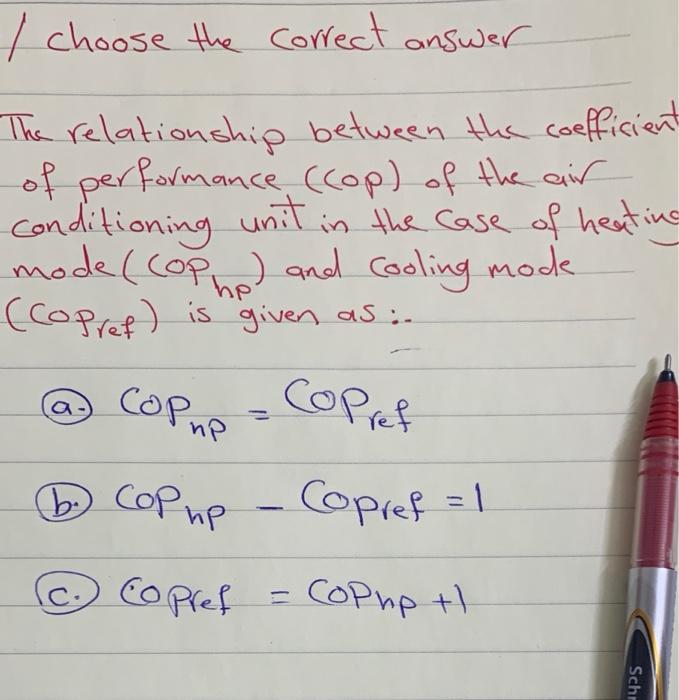 / choose the correct answer
The relationship between the coefficient
of performance (COP) of the air
conditioning unit in the case of heating
mode (COP hp) and cooling mode
(COPref) is given as :-
a. COP hp = COPref
b. COP hp - COPref = 1
c. COPref = COPhp + 1
Sch